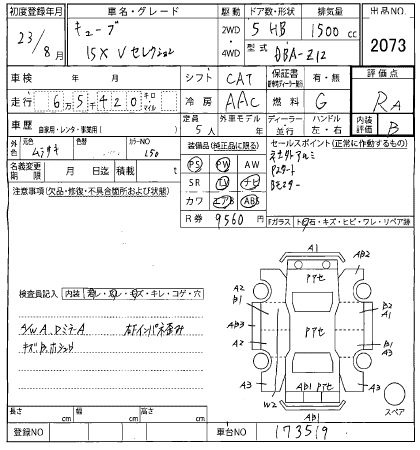 初度登録年月 車名・グレード 駆動 ドア数・形状 排気量 出品NO
23/8月 キューブ 2WD・4WD 5 HB 1500cc 2073
15X Vセレクション 型式 DBA-Z12
車検 年 月 シフト CAT 保証書 有・無 評価点
走行 6万5千420キロ マイル 冷房 AAC 燃料 G RA
車歴 自家用・レンタ・事業用( ) 定員 5人 外車モデル 年 ディーラー・並行 ハンドル 左・右 内装評価 B
外色 元色 ムラサキ 色替 カラーNO L50 装備品(純正品に限る) セールスポイント(正常に作動するもの)
名義変更期限 月 日迄 積載 t PS PW AW
注意事項(欠品・修復・不具合箇所および状態) SR ナビ
Pスタート
カワ エアB ABS
R券 9560円 Fガラス トビ石・キズ・ヒビ・ワレ・リペア跡
A1
アトセ
AB2
A2
B1
B2
A1
検査員記入 内装 キズ・キレ・コゲ・穴
S/W A. DミラーA
AB3
アトセ
B1
A3
A2
A2
A3
AB1 アトセ
A3
W2
AB1
スペア
長さ cm 幅 cm 高さ cm
登録NO 車台NO 173519